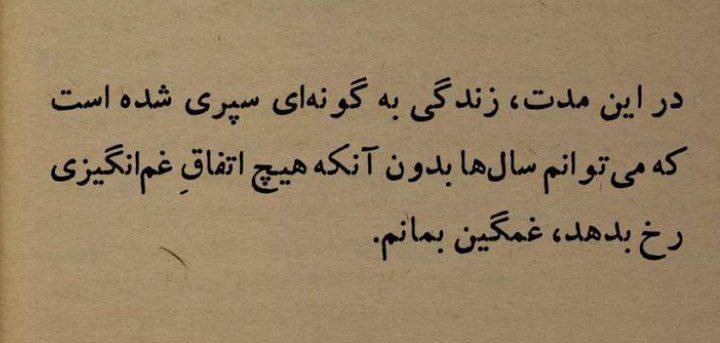 در این مدت، زندگی به گونه‌ای سپری شده است
که می‌توانم سال‌ها بدون آنکه هیچ اتفاقِ غم‌انگیزی
رخ بدهد، غمگین بمانم.